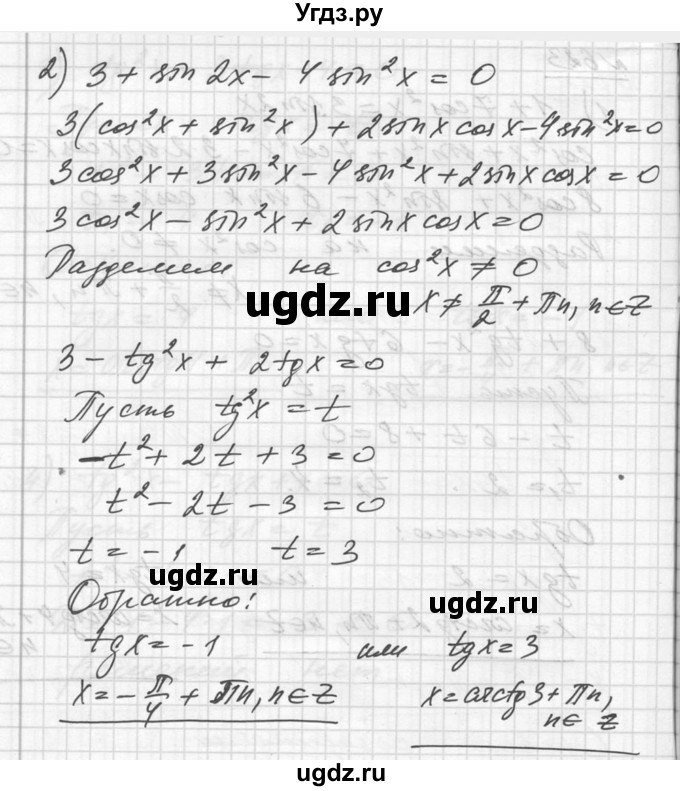 Угдз.ру
2) 3 + sin 2x - 4 sin²x = 0
3(cos²x + sin²x) + 2sinx cosx - 4sin²x = 0
3cos²x + 3sin²x - 4sin²x + 2sinx cosx = 0
3cos²x - sin²x + 2sinx cosx = 0
Разделим на cos²x ≠ 0
ugdz.ru
x ≠ π/2 + πn, n∈Z
3 - tg²x + 2tgx = 0
Пусть tg²x = t
-t² + 2t + 3 = 0
t² - 2t - 3 = 0
t = -1 t = 3
ugdz.ru
Обратно!
ugdz.ru
tgx = -1 или tgx = 3
x = -π/4 + πn, n∈Z x = arctg3 + πn,
n∈Z
ugdz.ru